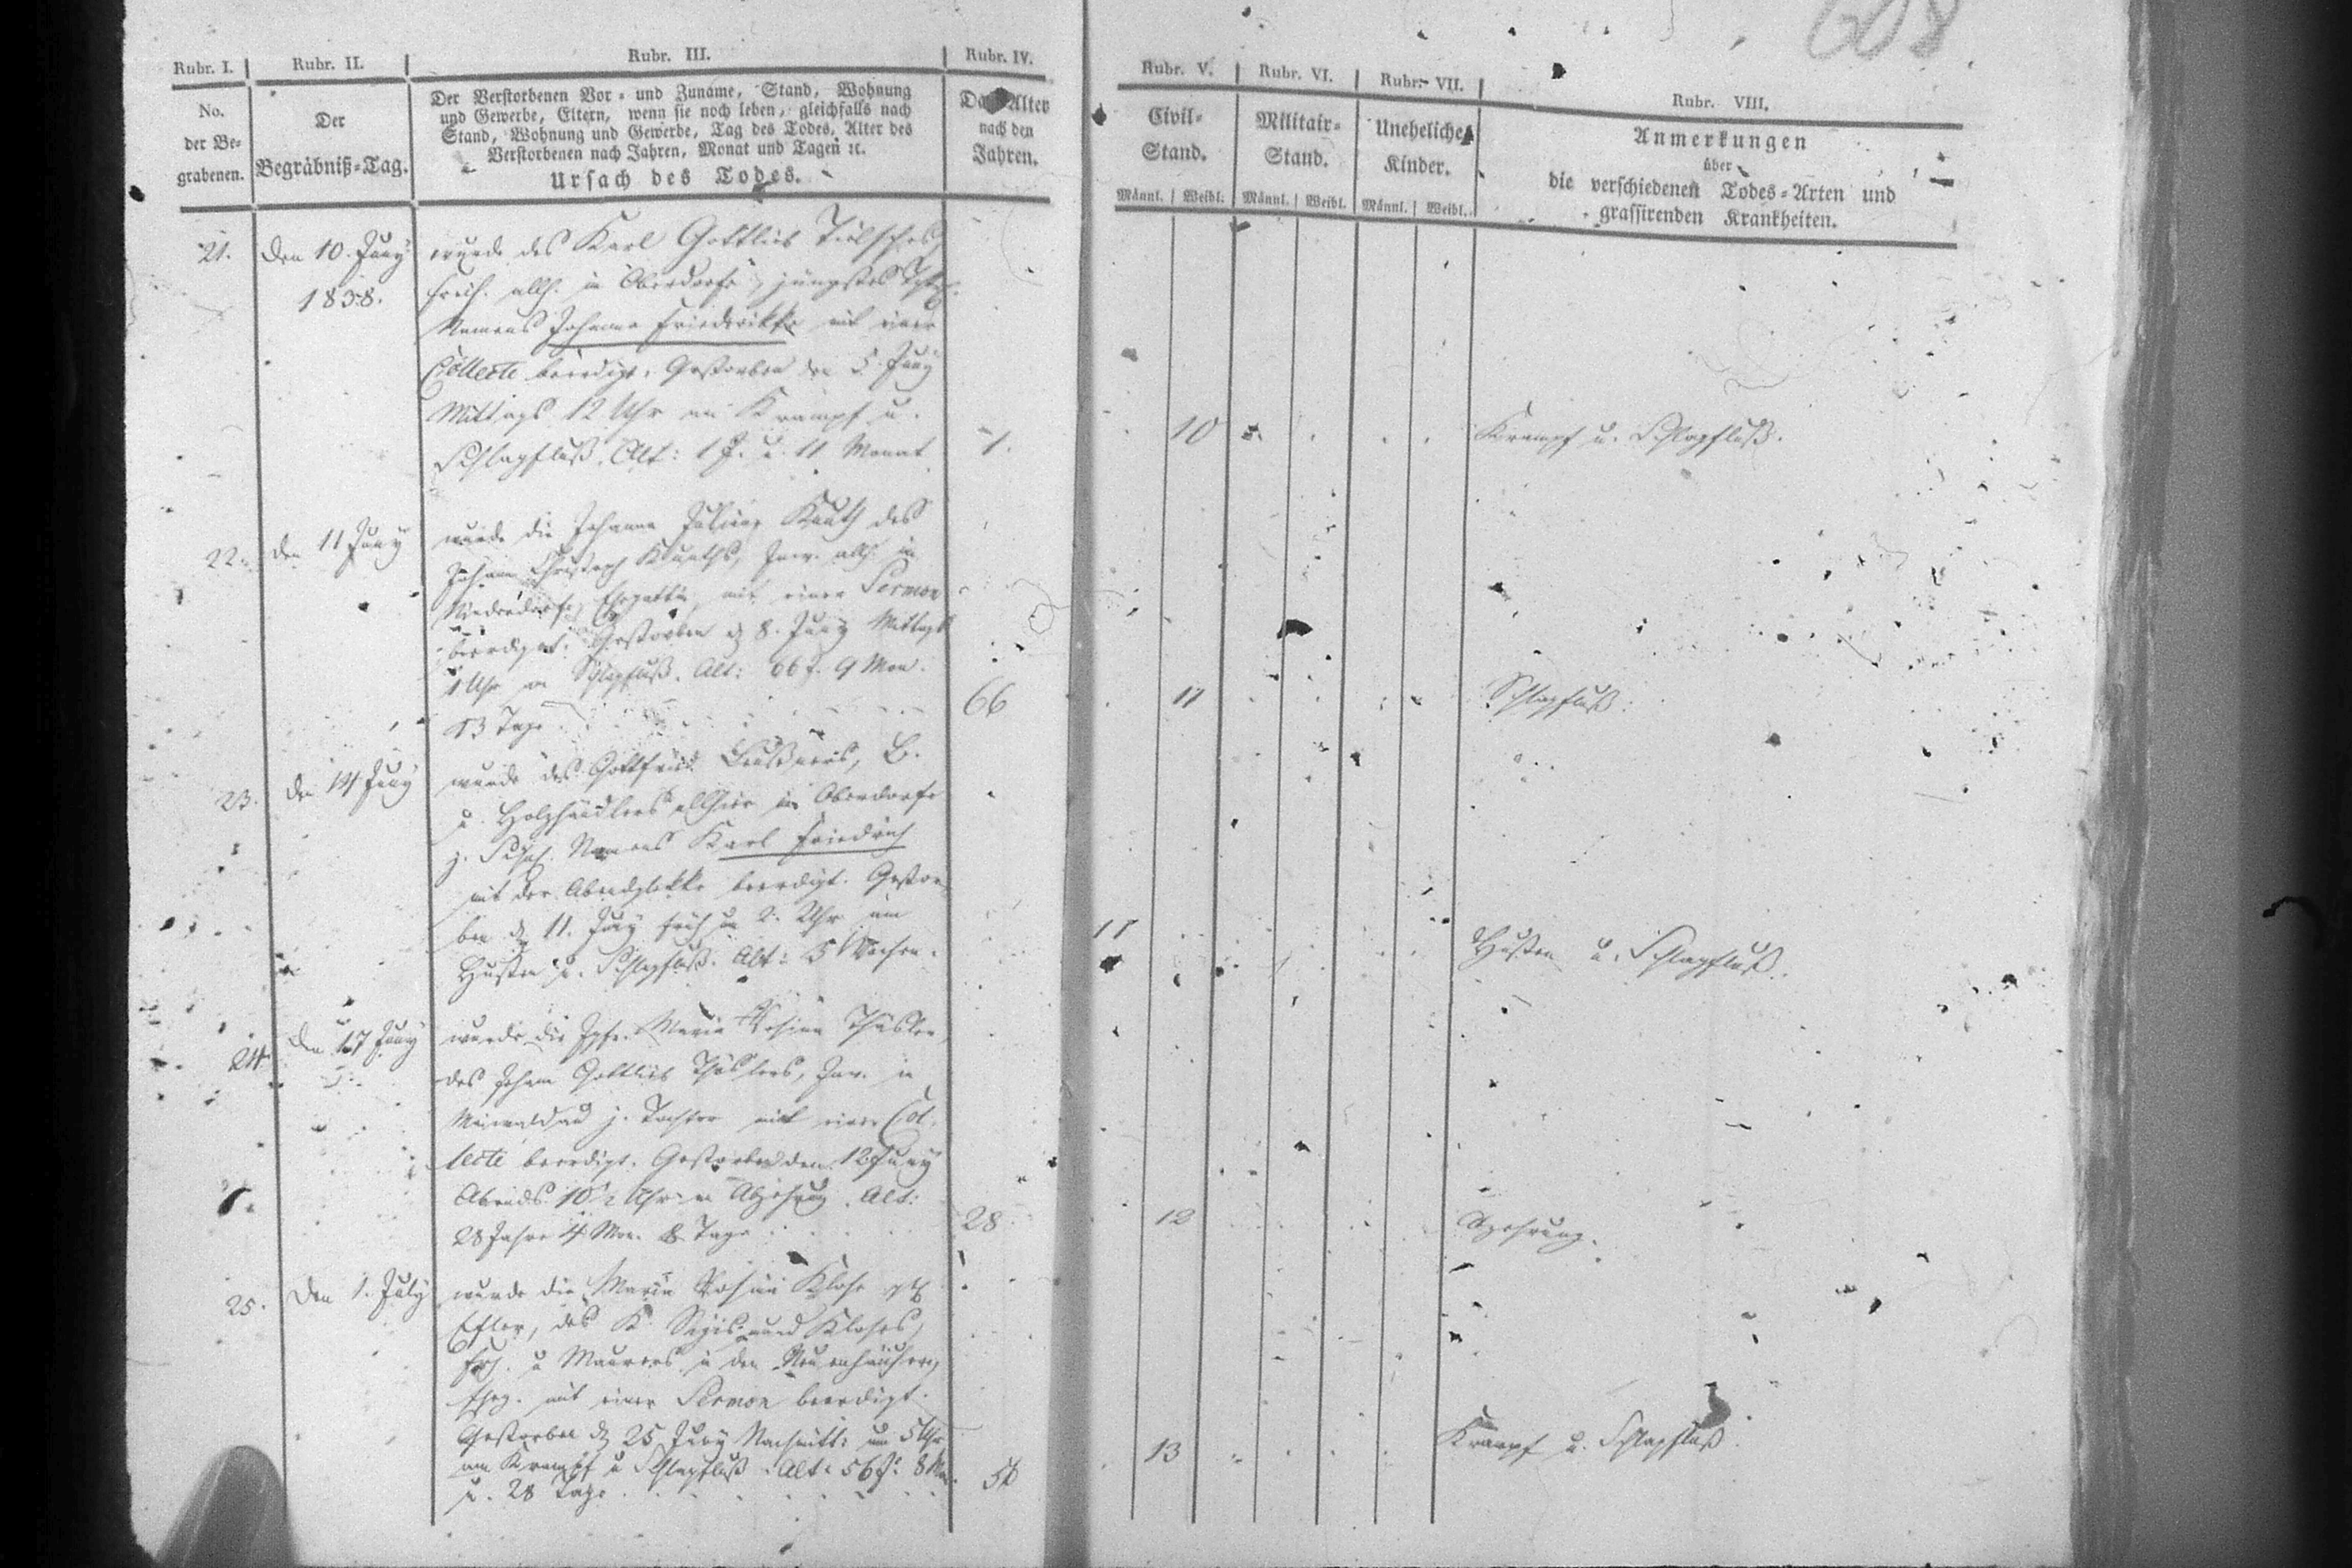 608
Rubr. I. Rubr. II. Rubr. III. Rubr. IV. Rubr. V. Rubr. VI. Rubr. VII. Rubr. VIII.
No.
der Be-
grabenen.
Der
Begräbniß-Tag.
Der Verstorbenen Vor- und Zuname, Stand, Wohnung
und Gewerbe, Eltern, wenn sie noch leben, gleichfalls nach
Stand, Wohnung und Gewerbe, Tag des Todes, Alter des
Verstorbenen nach Jahren, Monat und Tagen ꝛc.
Ursach des Todes.
Das Alter
nach den
Jahren.
Civil-
Stand.
Männl. Weibl.
Militair-
Stand.
Männl. Weibl.
Uneheliche
Kinder.
Männl. Weibl.
Anmerkungen
über
die verschiedenen Todes-Arten und
grassirenden Krankheiten.
21. den 10. Juny wurde des Karl Gottlieb
1838. allh. in Oberdorfe, jüngstes
Namens Johanne Friederikke mit einer
Collecte beerdigt. Gestorben den 5. Juny
Mittags 12 Uhr an Krampf u.
Schlagfluß. Alt: 1 J. u. 11 Monat 1. 10 Krampf u. Schlagfluß.
22. den 11 Juny wurde die Johanne des
Johann Christoph allh. in
Niederdorfe, Ehegattin mit einer Sermon
beerdiget. Gestorben d. 8. Juny Mittags
1 Uhr an Schlagfluß. Alt: 66 J. 9 Mon.
13 Tage. 66 11 Schlagfluß.
23. den 14 Juny wurde des Gottfried B.
u. Holzhändlers allhier in Oberdorfe
j. Namens Karl Friedrich
mit der Abendglokke beerdigt. Gestor-
ben d. 11. Juny früh um 2. Uhr am
Husten u. Schlagfluß. Alt: 5 Wochen. 11 Husten u. Schlagfluß.
24. den 17 Juny wurde die Jgfr. Maria Rosina
des Johann Gottlieb Inw. in
j. Tochter mit einer Col-
lecte beerdigt. Gestorben den 12 Juny
Abends 10½ Uhr an Abzehrung. Alt:
28 Jahre 4 Mon. 8 Tage 28 12
25. den 1. July wurde die Maria Rosina Klose
des K. Sigismund Kloses,
u. Maurers in den Neuenhäusern,
Eheg. mit einer Sermon beerdigt.
Gestorben d. 25 Juny Nachmitt: um 5 Uhr
am Krampf u. Schlagfluß. Alt: 56 J. 8 Mon.
u. 28 Tage 56 13 Krampf u. Schlagfluß.